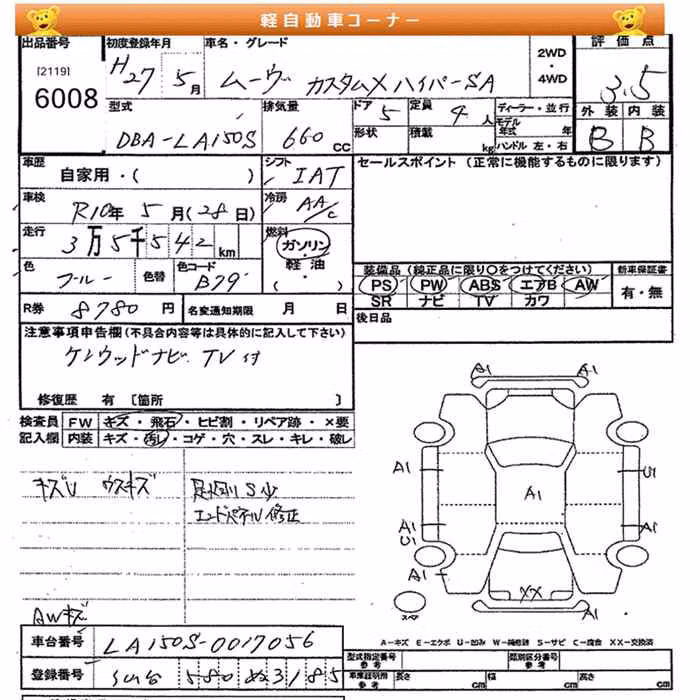 軽自動車コーナー
出品番号 初度登録年月 車名・グレード 2WD・4WD 評価点
[2119]
6008
H27 5月 ムーヴ カスタムXハイパーSA 3.5
型式 排気量 ドア 5 定員 4人 ディーラー・並行 外装 内装
DBA-LA150S 660cc 形状 積載 kg モデル年式 年 B B
ハンドル 左・右
車歴 シフト セールスポイント (正常に機能するものに限ります)
自家用・( ) IAT
車検 冷房
R10年 5月(28日) AA/C
走行 燃料
3万5千542km ガソリン・軽油・( )
色 色替 色コード 装備品 (純正品に限り○をつけてください) 新車保証書
ブルー B79 PS PW ABS エアB AW 有・無
SR ナビ TV カワ
R券 8780円 名変通知期限 月 日 後日品
注意事項申告欄 (不具合内容等は具体的に記入して下さい)
ケンウッドナビ TV付
修復歴 有 [箇所 ]
検査員 FW キズ・飛石・ヒビ割・リペア跡・×要
記入欄 内装 キズ・汚レ・コゲ・穴・スレ・キレ・破レ
キズU ウスキズ 足廻りS少
エンドパネル修正
AWキズ
A1 A1
A1 U1
A1
A1 A1
U1
A1
XX
スペア
A1
A-キズ E-エクボ U-凹み W-補修跡 S-サビ C-腐食 XX-交換済
車台番号 LA150S-0017056
型式指定番号 参考 類別区分番号 参考
登録番号 580 ぬ 3185
車庫証明用 参考 長さ cm 幅 cm 高さ cm